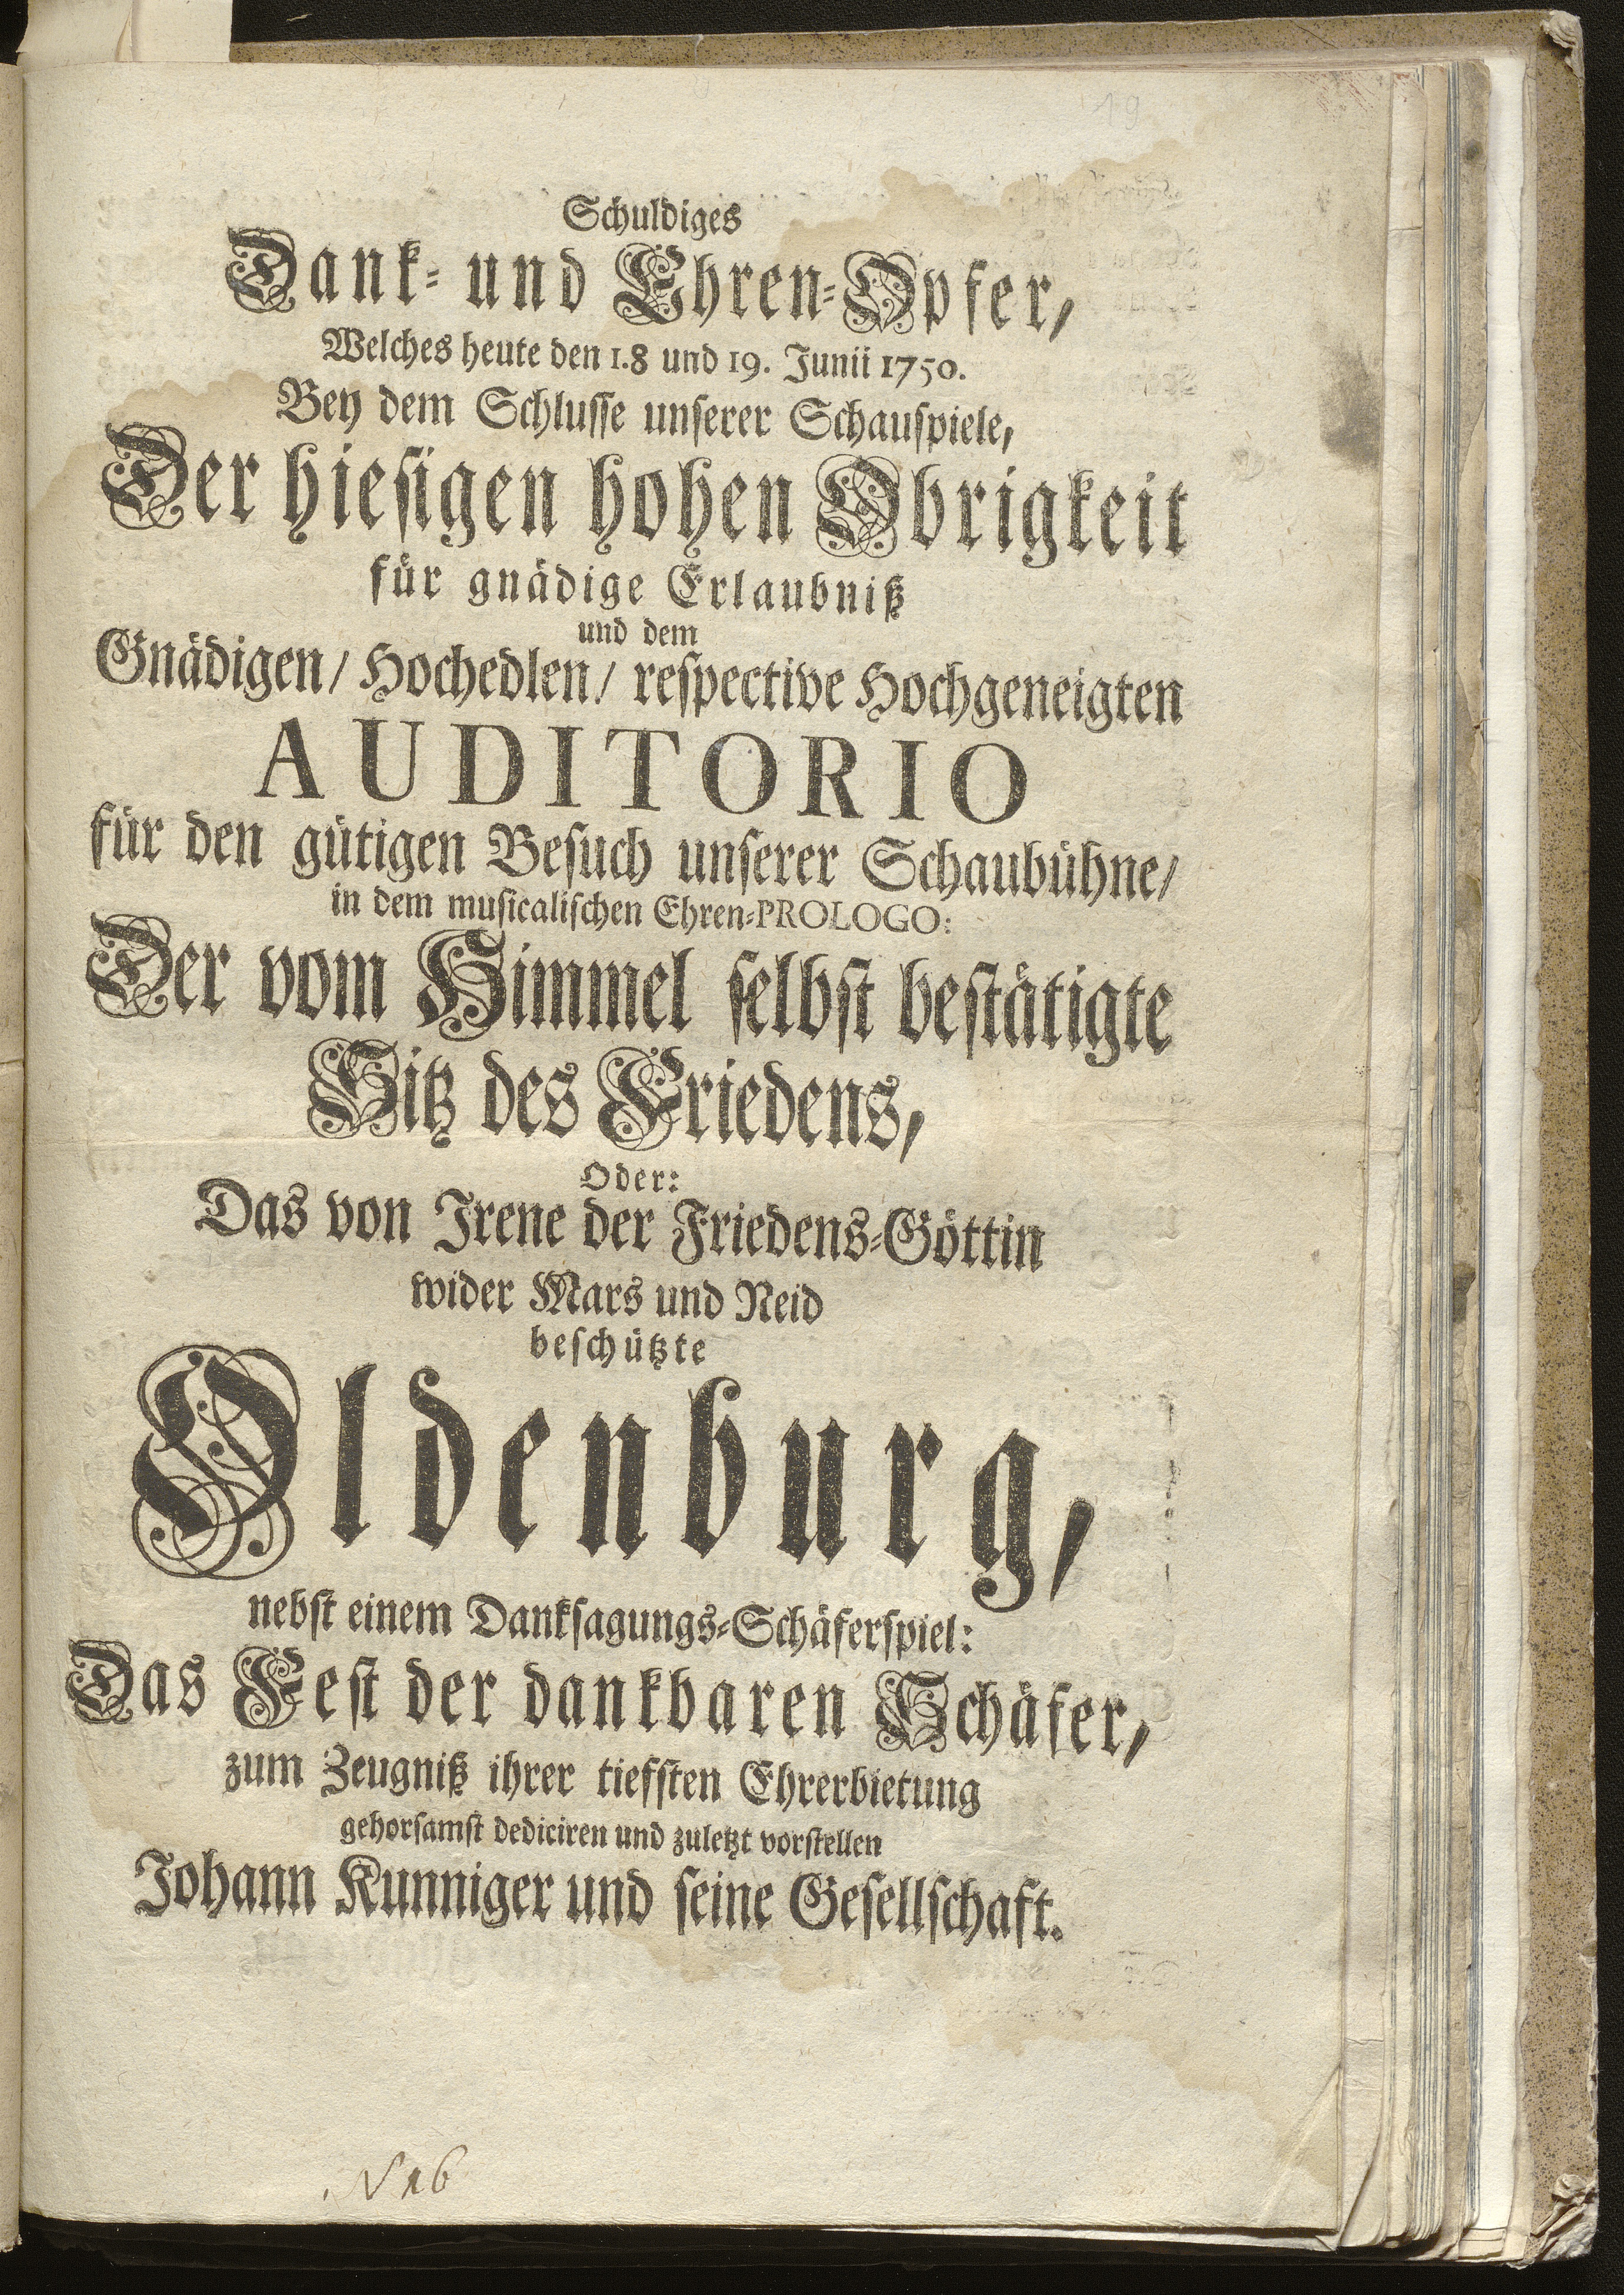 19
Schuldiges
Dank- und Ehren-Opfer,
Welches heute den 1.8 und 19. Junii 1750.
Bey dem Schlusse unserer Schauspiele,
Der hiesigen hohen Obrigkeit
für gnädige Erlaubniß
und dem
Gnädigen/ Hochedlen/ respective Hochgeneigten
AUDITORIO
für den gütigen Besuch unserer Schaubühne/
in dem musicalischen Ehren-PROLOGO:
Der vom Himmel selbst bestätigte
Sitz des Friedens,
Oder:
Das von Irene der Friedens-Göttin
wider Mars und Neid
beschützte
Oldenburg,
nebst einem Danksagungs-Schäferspiel:
Das Fest der dankbaren Schäfer,
zum Zeugniß ihrer tiefsten Ehrerbietung
gehorsamst dediciren und zuletzt vorstellen
Johann Kunniger und seine Gesellschaft.
N 16